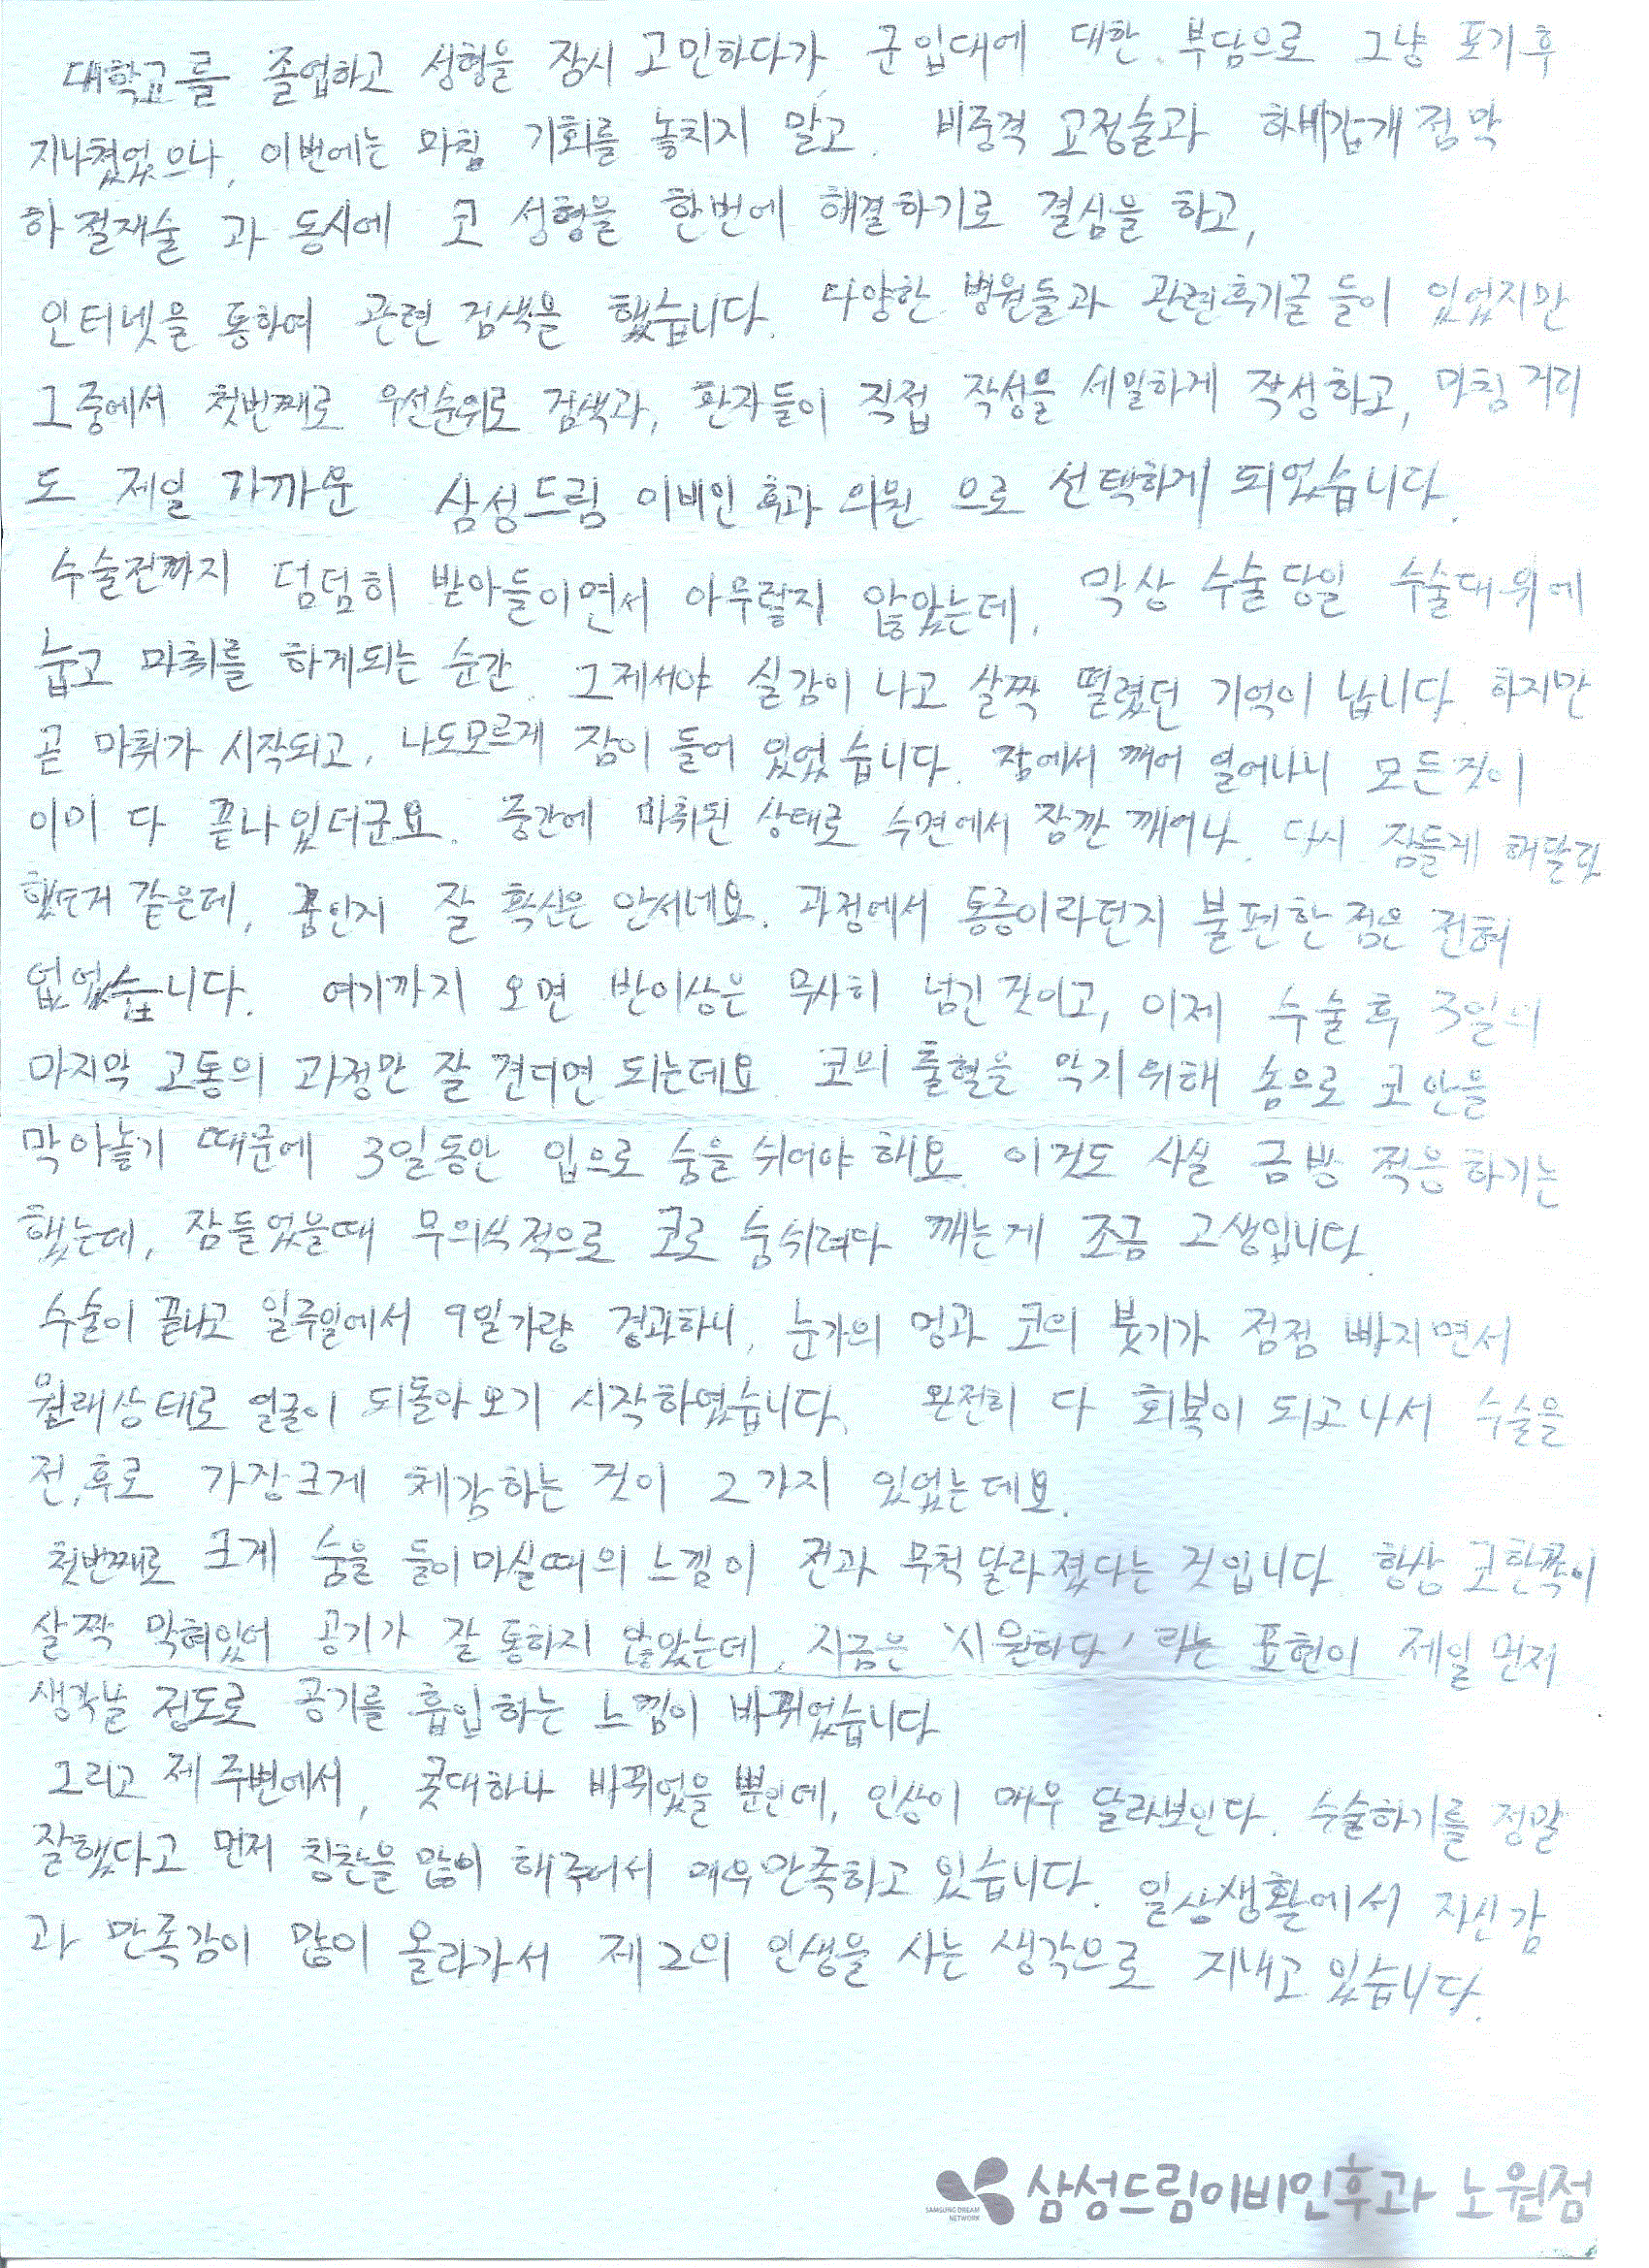 대학교를 졸업하고 성형을 잠시 고민하다가, 군입대에 대한 부담으로 그냥 포기후
지나쳤었으나, 이번에는 마침 기회를 놓치지 말고. 비중격 교정술과 하비갑개 점막
하 절재술 과 동시에 코 성형을 한번에 해결하기로 결심을 하고,
인터넷을 통하여 관련 검색을 했습니다. 다양한 병원들과 관련후기글 들이 있었지만
그중에서 첫번째로 우선순위로 검색과, 환자들이 직접 작성을 세밀하게 작성하고, 마침 거리
도 제일 가까운 삼성드림 이비인후과 의원 으로 선택하게 되었습니다.
수술전까지 덤덤히 받아들이면서 아무렇지 않았는데, 막상 수술 당일 수술대위에
눕고 마취를 하게되는 순간. 그제서야 실감이 나고 살짝 떨렸던 기억이 납니다. 하지만
곧 마취가 시작되고, 나도모르게 잠이 들어 있었습니다. 잠에서 깨어 일어나니 모든것이
이미 다 끝나있더군요. 중간에 마취된 상태로 수면에서 잠깐 깨어나. 다시 잠들게 해달라
했던거 같은데, 꿈인지 잘 확신은 안서네요. 과정에서 통증이라던지 불편한 점은 전혀
없었습니다. 여기까지 오면 반이상은 무사히 넘긴것이고, 이제 수술후 3일의
마지막 고통의 과정만 잘 견디면 되는데요. 코의 출혈을 막기위해 솜으로 코 안을
막아놓기 때문에 3일동안 입으로 숨을 쉬어야 해요. 이것도 사실 금방 적응하기는
했는데, 잠들었을때 무의식적으로 코로 숨쉬려다 깨는게 조금 고생입니다.
수술이 끝나고 일주일에서 9일가량 경과하니, 눈가의 멍과 코의 붓기가 점점 빠지면서
원래상태로 얼굴이 되돌아오기 시작하였습니다. 완전히 다 회복이 되고나서 수술을
전,후로 가장크게 체감하는 것이 2가지 있었는데요.
첫번째로 크게 숨을 들이마실때의 느낌이 전과 무척 달라졌다는 것입니다. 항상 코한쪽이
살짝 막혀있어 공기가 잘 통하지 않았는데, 지금은 '시원하다' 라는 표현이 제일 먼저
생각날 정도로 공기를 흡입하는 느낌이 바뀌었습니다
그리고 제 주변에서, 콧대하나 바뀌었을 뿐인데, 인상이 매우 달라보인다. 수술하기를 정말
잘했다고 먼저 칭찬을 많이 해주어서 매우만족하고 있습니다. 일상생활에서 자신감
과 만족감이 많이 올라가서 제2의 인생을 사는 생각으로 지내고 있습니다.
SAMSUNG DREAM NETWORK 삼성드림이비인후과 노원점